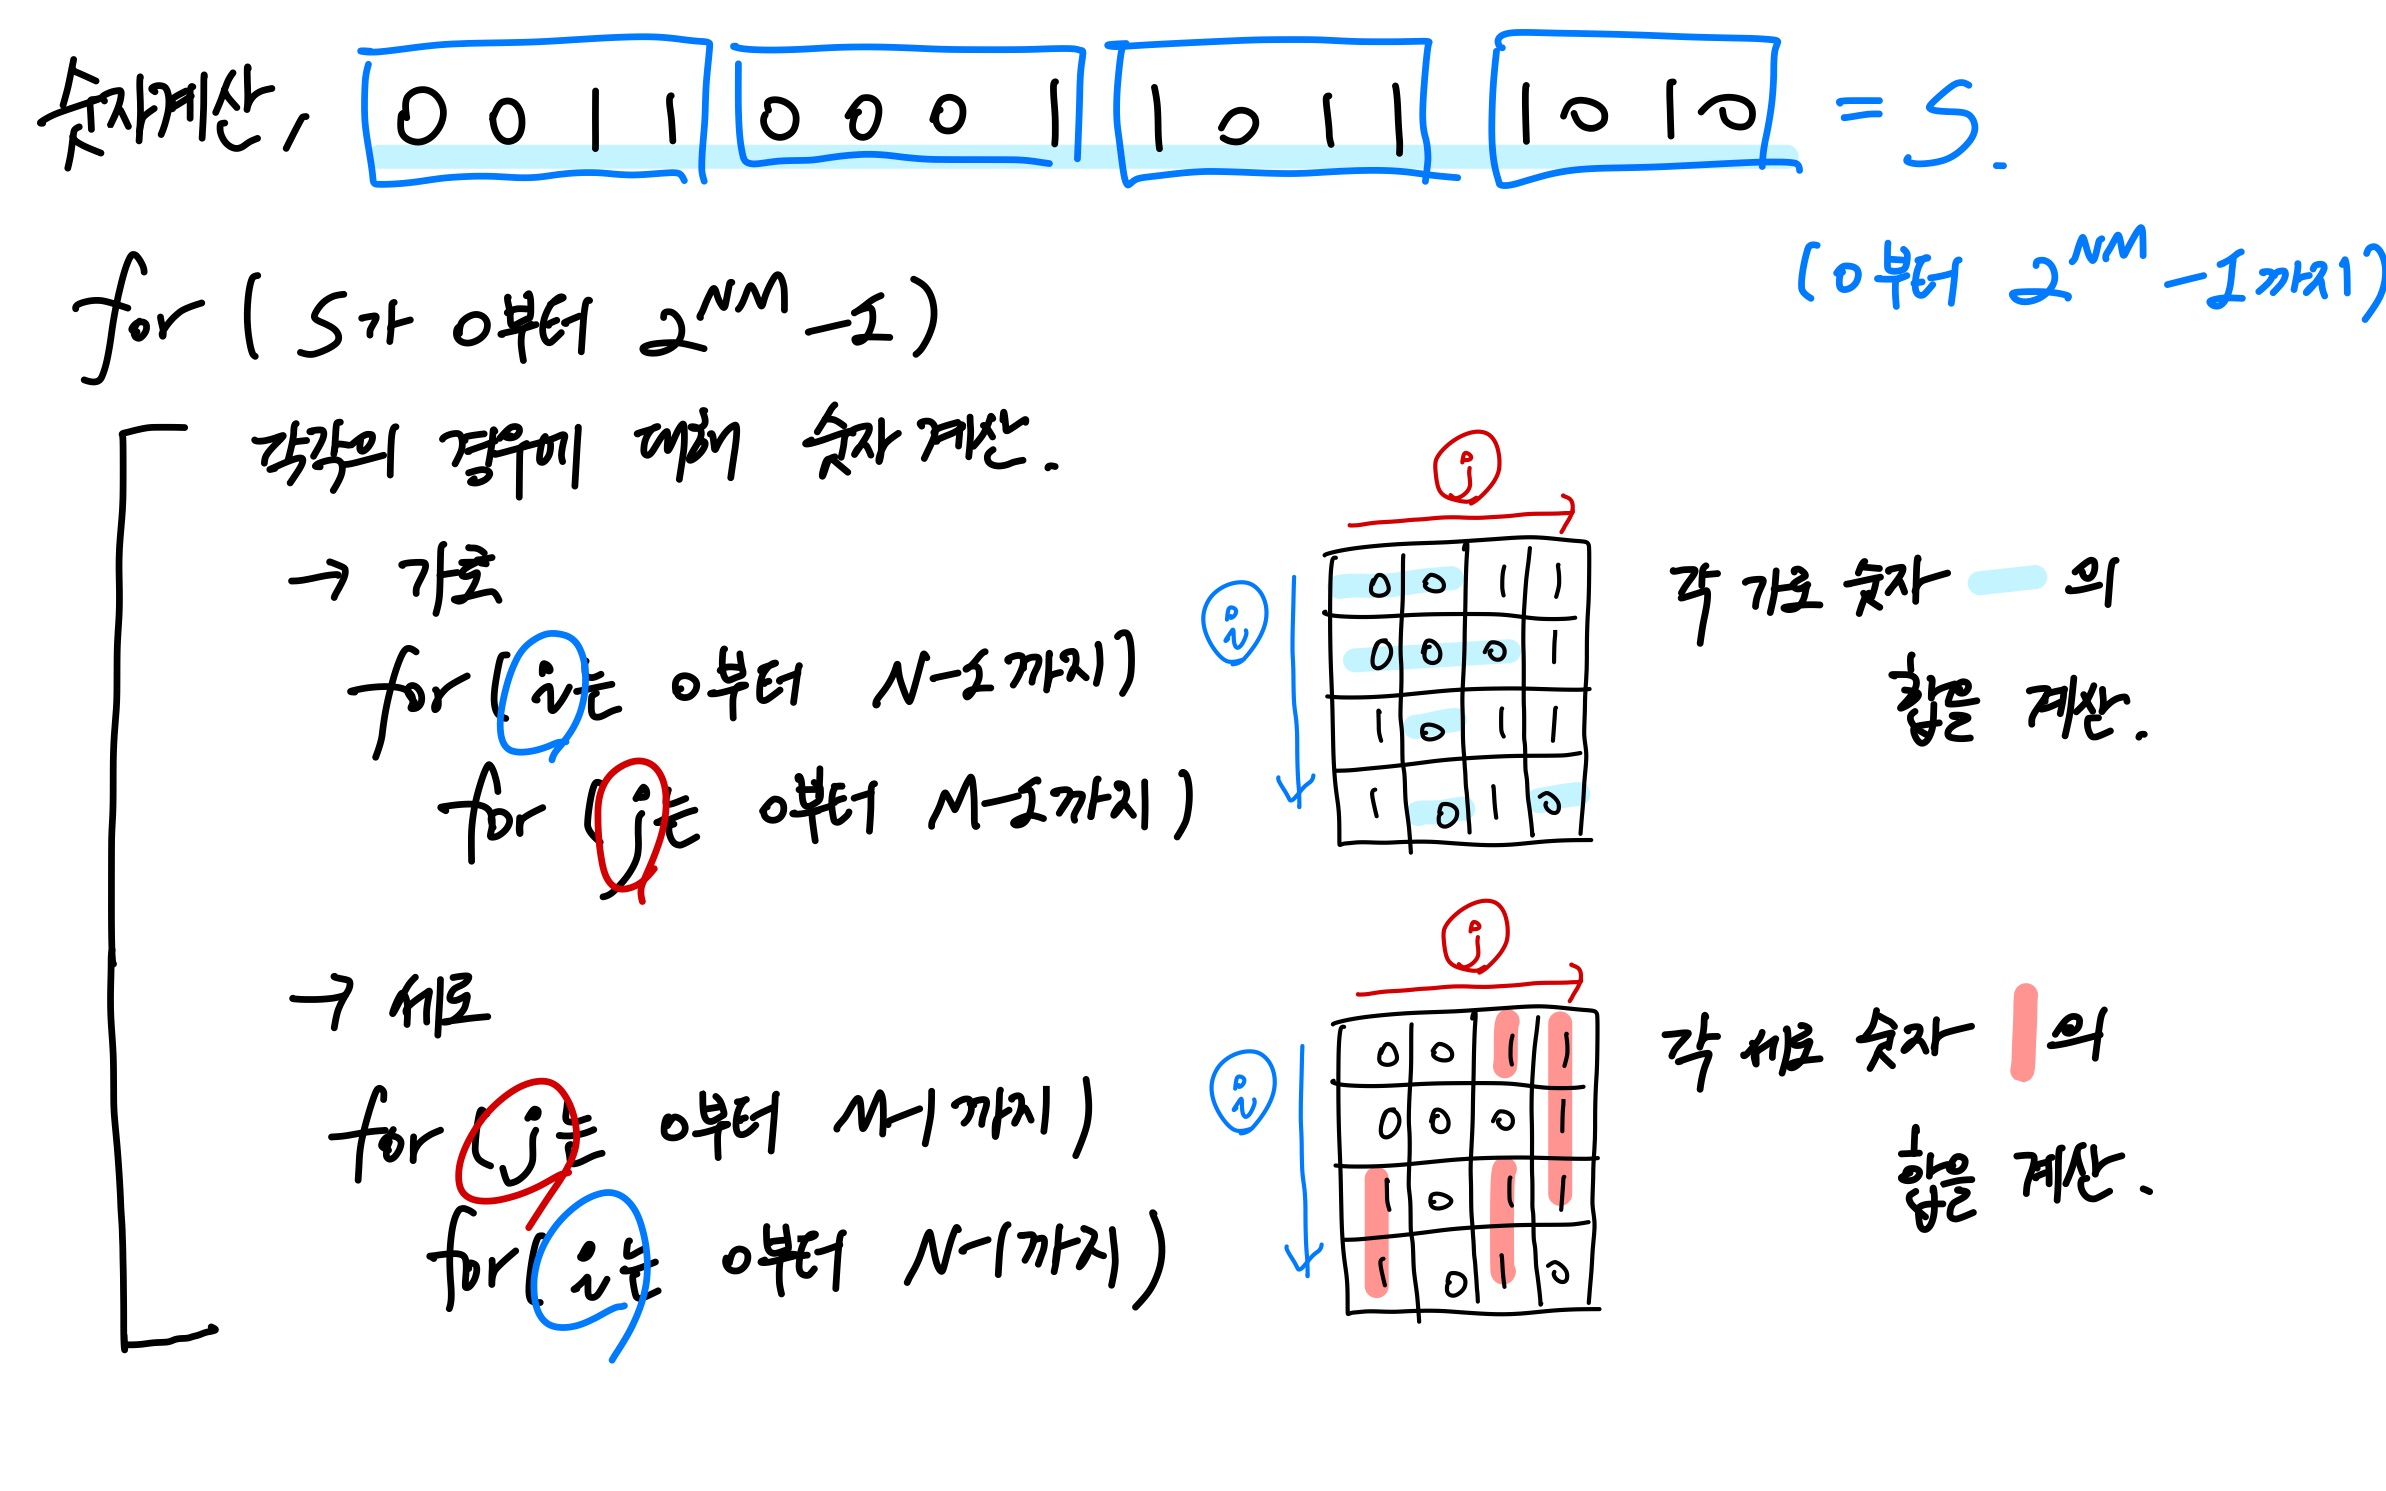 숫자계산, 0011 0001 1011 1010 = S.
(0부터 2^NM -1까지)
for ( S가 0부터 2^NM -1)
각각의 경우에 대해 숫자 계산.
→ 가로
for (i는 0부터 N-1까지)
for (j는 0부터 M-1까지)
j
i
0 0 1 1
0 0 0 1
1 0 1 1
1 0 1 0
각 가로 숫자 의
합을 계산.
→ 세로
for (j는 0부터 M-1까지)
for (i는 0부터 N-1까지)
j
i
0 0 1 1
0 0 0 1
1 0 1 1
1 0 1 0
각 세로 숫자 의
합을 계산.